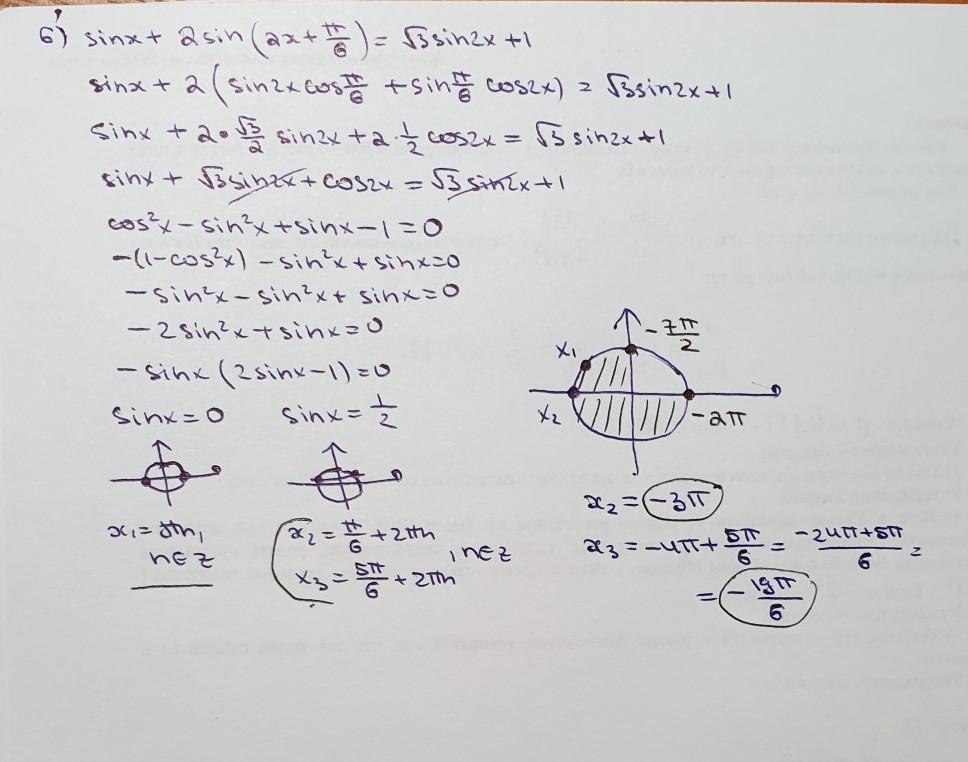 6) sinx + 2sin(2x + π/6) = √3sin2x + 1
sinx + 2(sin2x cos π/6 + sin π/6 cos2x) = √3sin2x + 1
sinx + 2 · √3/2 sin2x + 2 · 1/2 cos2x = √3 sin2x + 1
sinx + √3sin2x + cos2x = √3 sin2x + 1
cos²x − sin²x + sinx − 1 = 0
−(1 − cos²x) − sin²x + sinx = 0
− sin²x − sin²x + sinx = 0
− 2sin²x + sinx = 0
− sinx (2sinx − 1) = 0
sinx = 0 sinx = 1/2
x₁ = πn, n∈Z
x₂ = π/6 + 2πn
x₃ = 5π/6 + 2πn , n∈Z
−7π/2
x₁
x₂
−2π
x₂ = −3π
x₃ = −4π + 5π/6 = −24π+5π/6 =
= −19π/6